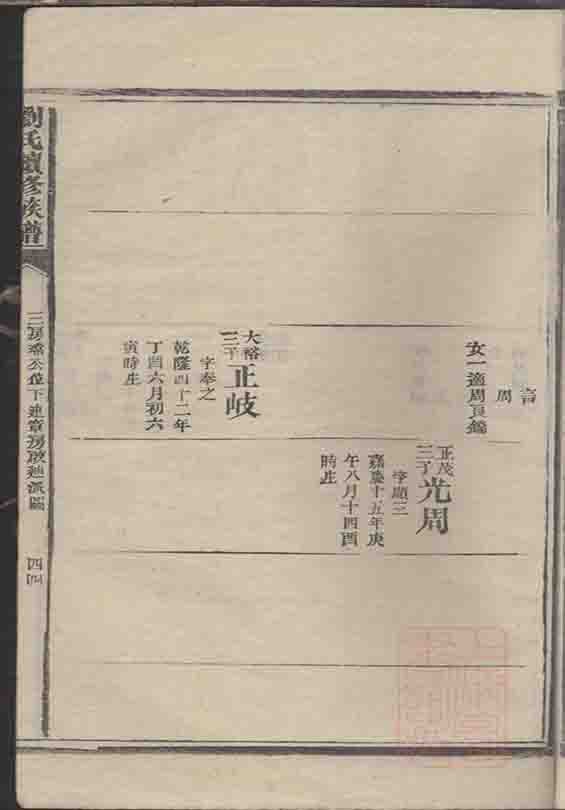 言
周
女一適周良
正茂
三子
光周
字顯三
嘉慶十五年庚
午八月十四酉
時生
大裕
三子
正岐
字奉之
乾隆四十二年
丁酉六月初六
寅時生
劉氏續修族譜
三房
公位下連
房啟迪派圖
四四